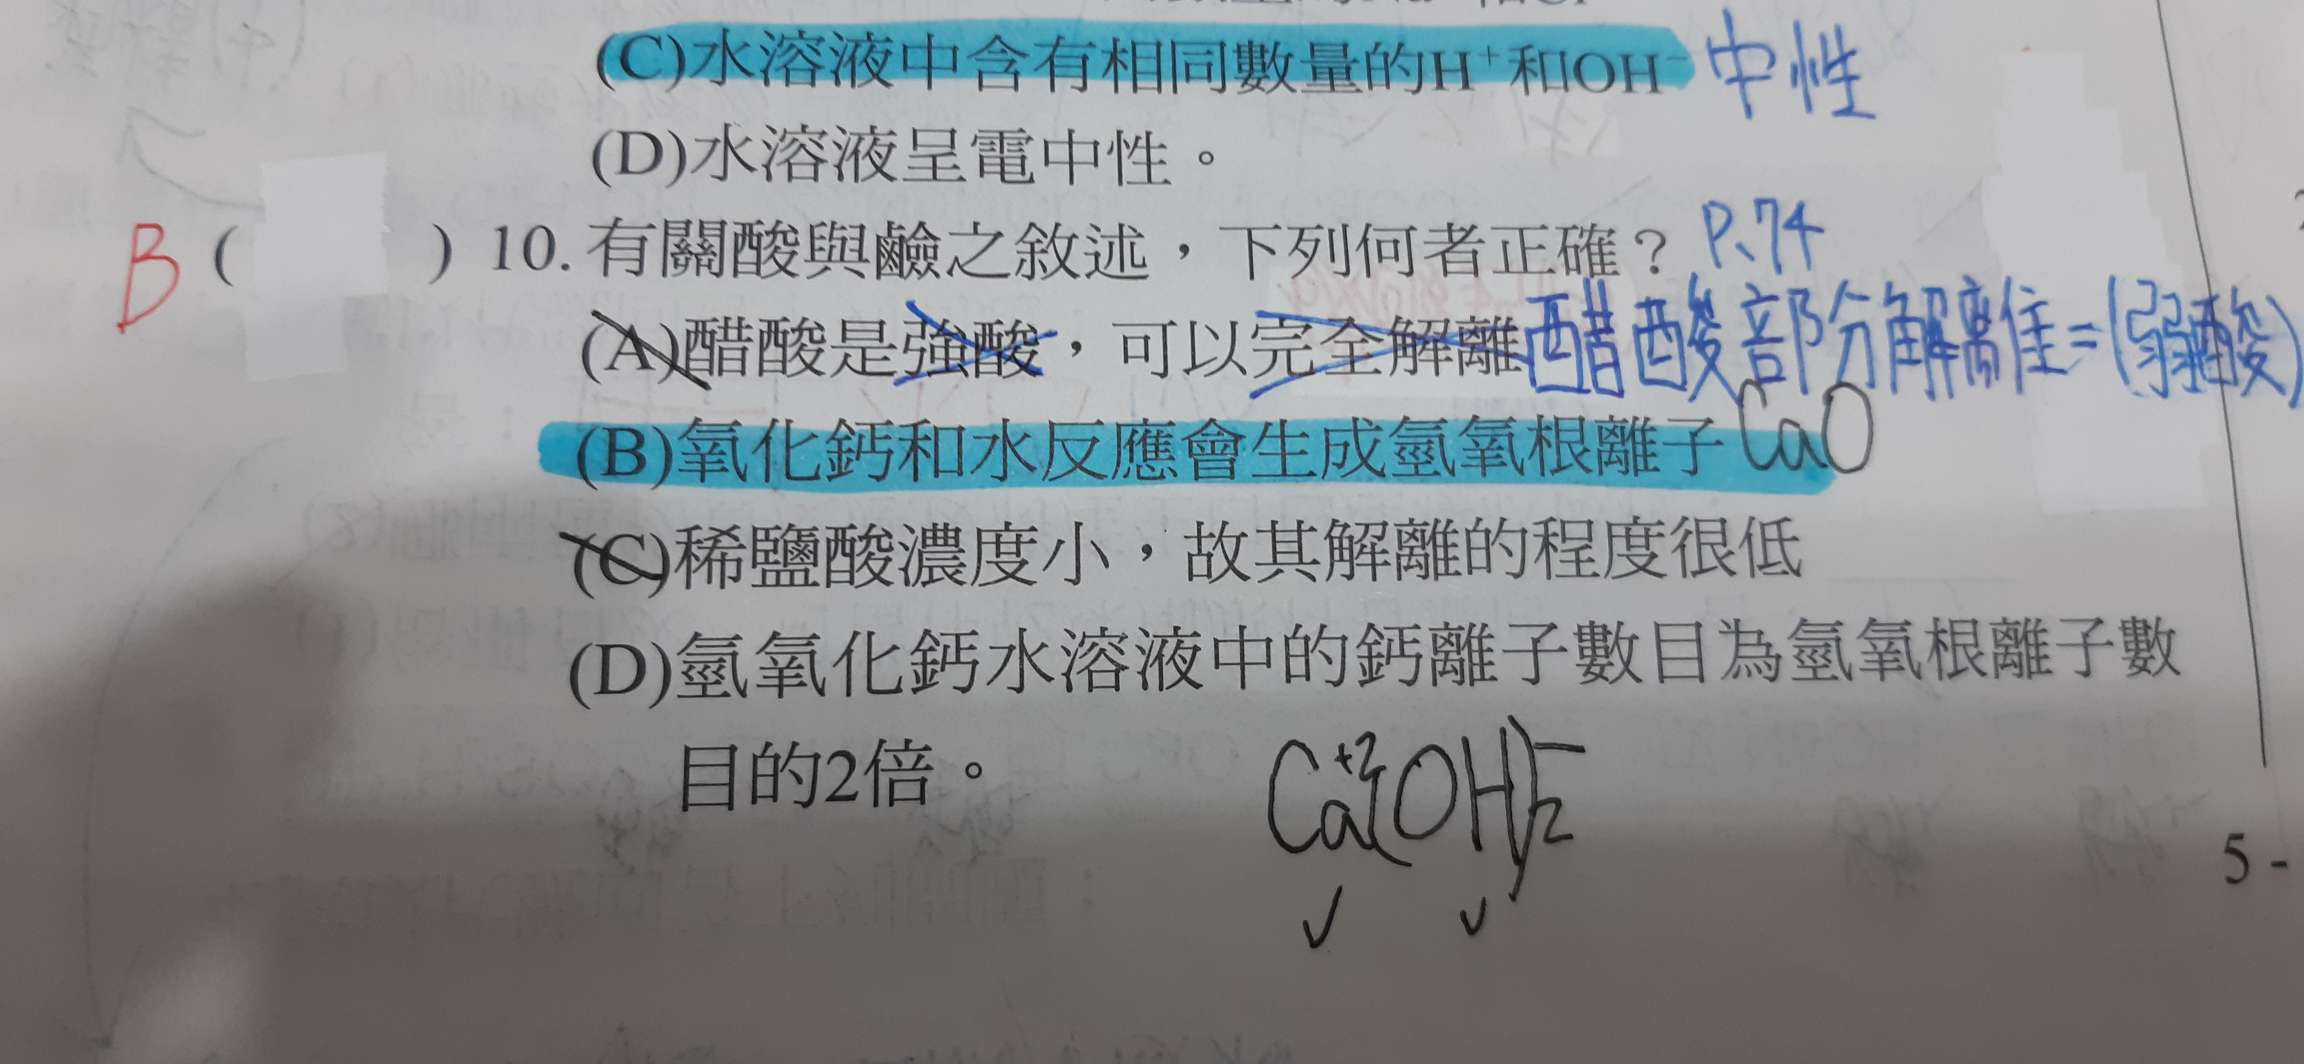 (C)水溶液中含有相同數量的H⁺和OH⁻ 中性
(D)水溶液呈電中性。
B ( ) 10. 有關酸與鹼之敘述，下列何者正確？ P.74
(A)醋酸是強酸，可以完全解離 醋酸部分解離=(弱酸)
(B)氧化鈣和水反應會生成氫氧根離子 CaO
(C)稀鹽酸濃度小，故其解離的程度很低
(D)氫氧化鈣水溶液中的鈣離子數目為氫氧根離子數
目的2倍。
Ca⁺²(OH)₂⁻
5 -